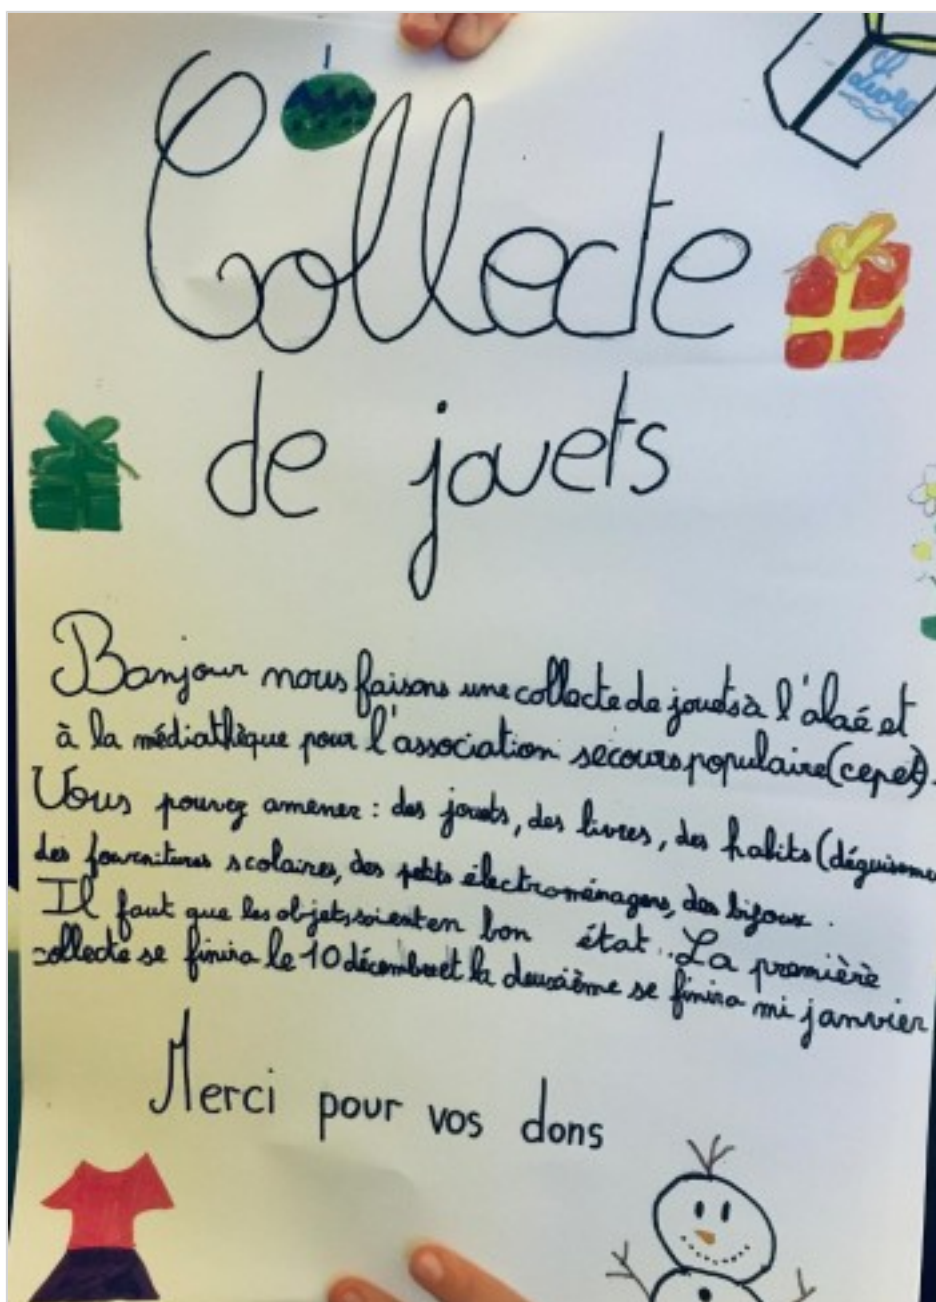 Collecte
de jouets
Bonjour nous faisons une collecte de jouets à l'alaé et
à la médiathèque pour l'association secours populaire (cepet).
Vous pouvez amener : des jouets, des livres, des habits (déguiseme
des fournitures scolaires, des petits électroménagers, des bijoux.
Il faut que les objets soient en bon état. La première
collecte se finira le 10 décembre et la deuxième se finira mi janvier
Merci pour vos dons